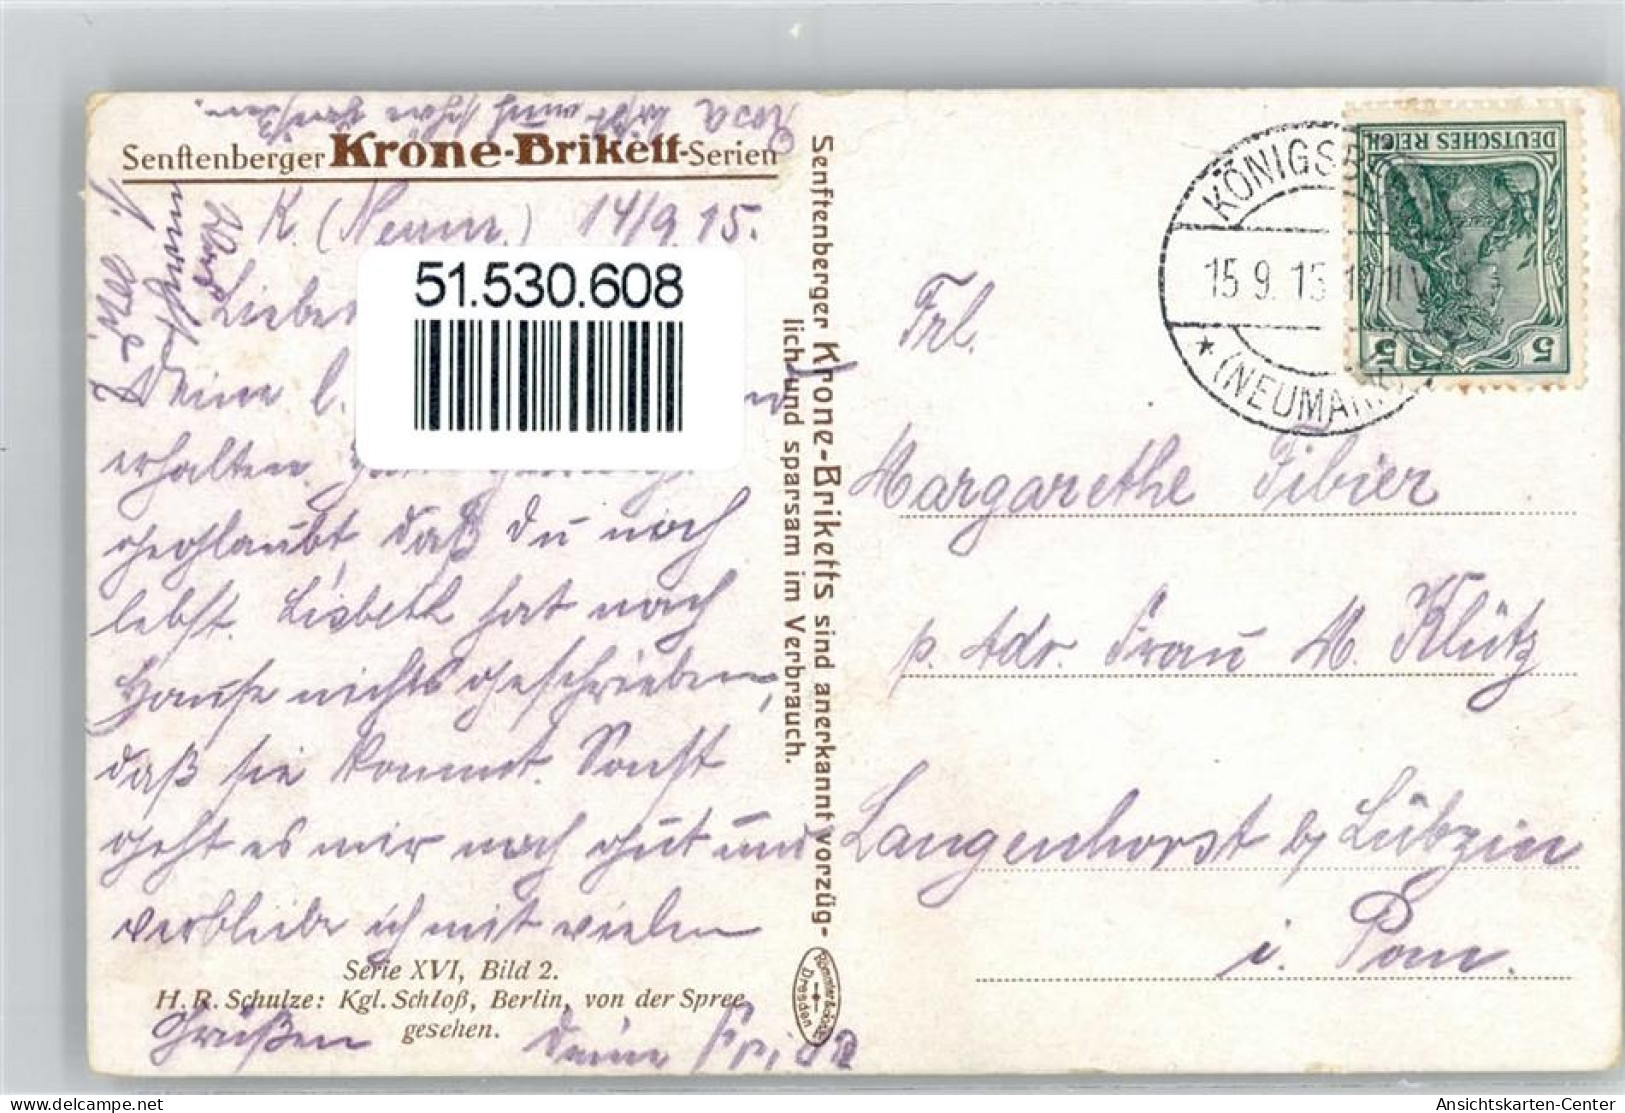 Rosa läßt auch schön grüßen.
Senftenberger Krone-Brikett-Serien
K. (Neum.) 14/9.15.
Liebe
51.530.608
Deine l.
erhalten.
geglaubt, daß Du noch
lebst. Lisbeth hat nach
Hause nichts geschrieben,
daß sie kommt. Sonst
geht es mir noch gut und
verbleibe ich mit vielen
Serie XVI, Bild 2.
H. R. Schulze: Kgl. Schloß, Berlin, von der Spree
gesehen.
Grüßen Deine Frida
Senftenberger Krone-Briketts sind anerkannt vorzüg-
lich und sparsam im Verbrauch.
Römmler & Jonas
Dresden
DEUTSCHES REICH
5 5
KÖNIGSB
15 9. 15
* (NEUMARK)
Frl.
Margarethe Fibier
p. Adr. Frau M. Klütz
Langenhorst b/ Lübzin
i. Pom.
Ansichtskarten-Center
delcampe.net